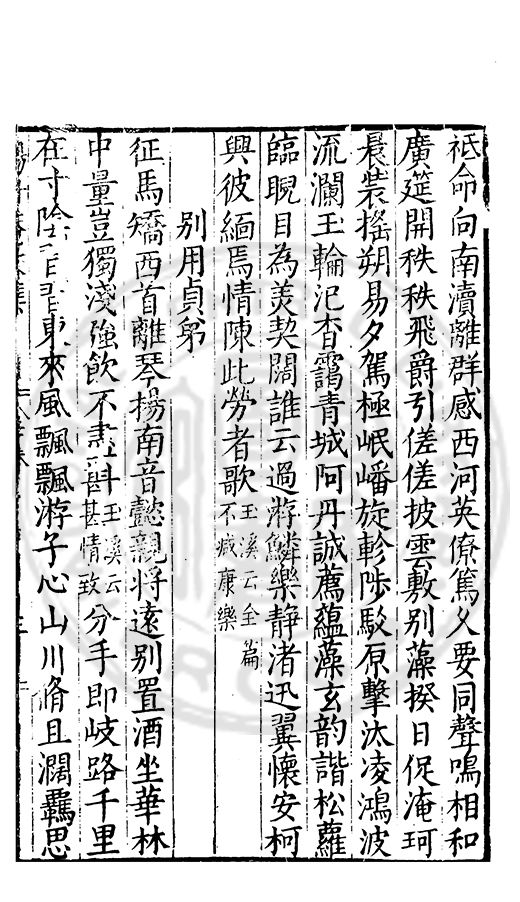 祗命向南瀆離群感西河英僚篤久要同聲鳴相和
廣筵開秩秩飛爵引傞傞披雲敷別藻揆日促淹珂
晨裝搖朔易夕駕極岷嶓旋軫陟駁原擊汰凌鴻波
流瀾玉輪汜杳靄青城阿丹誠薦蘊藻玄韵諧松蘿
臨睨目為羙契闊誰云過游鱗樂静渚迅翼懷安柯
興彼緬焉情陳此勞者歌玉溪云全篇不减康樂
別用貞弟
征馬矯西首離琴揚南音懿親將遠別置酒坐華林
中量豈獨淺強飲不盡斟玉溪云甚情致分手即岐路千里
在寸陰東來風飄飄游子心山川脩且濶羈思